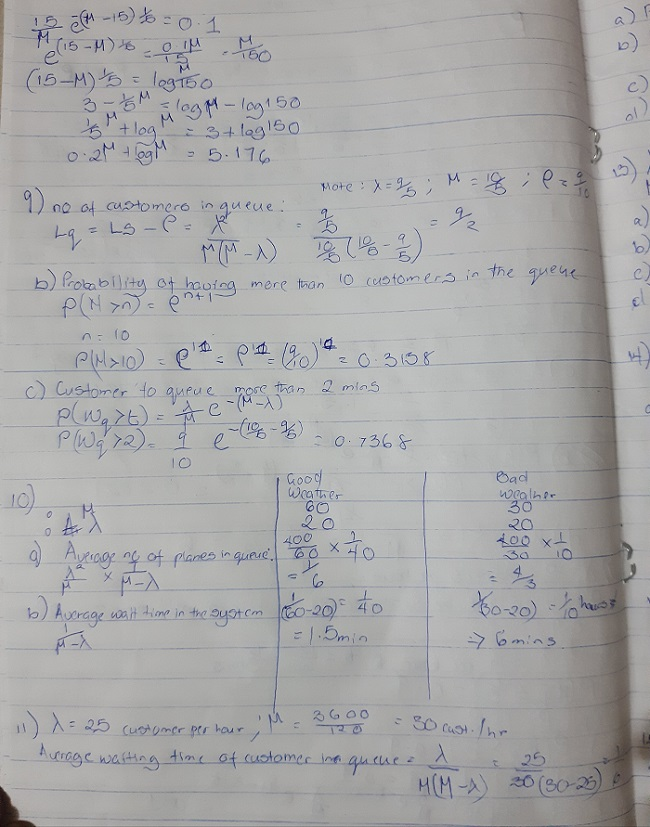 15/μ e^-(μ-15)1/5 = 0.1
e^(15-μ)1/5 = 0.1μ/15 = μ/150
(15-μ)1/5 = log μ/150
3 - 1/5 μ = log μ - log 150
1/5 μ + log μ = 3 + log 150
0.2μ + log μ = 5.176
Note: λ = 9/5 ; μ = 10/5 ; ρ = 9/10
9) no of customers in queue:
Lq = Ls - ρ = λ²/μ(μ-λ) = 9/5 / 10/5 (10/5 - 9/5) = 9/2
b) Probability of having more than 10 customers in the queue
P(N>n) = ρ^n+1
n = 10
P(N>10) = ρ = ρ = (9/10) = 0.3138
c) Customer to queue more than 2 mins
P(Wq>t) = λ/μ e^-(μ-λ)
P(Wq>2) = 9/10 e^-(10/5 - 9/5) = 0.7368
Good Weather Bad Weather
10) : μ 60 30
: λ 20 20
a) Average no of planes in queue. 400/60 × 1/40 400/30 × 1/10
λ²/μ × 1/μ-λ = 1/6 = 4/3
b) Average wait time in the system 1/(60-20) = 1/40 1/(30-20) = 1/10 hours
1/μ-λ = 1.5min => 6 mins
11) λ = 25 customer per hour, ; μ = 3600/120 = 30 cust./hr
Average waiting time of customer in queue = λ/μ(μ-λ) = 25/30(30-25)
a)
b)
c)
d)
13)
a)
b)
c)
d
14)